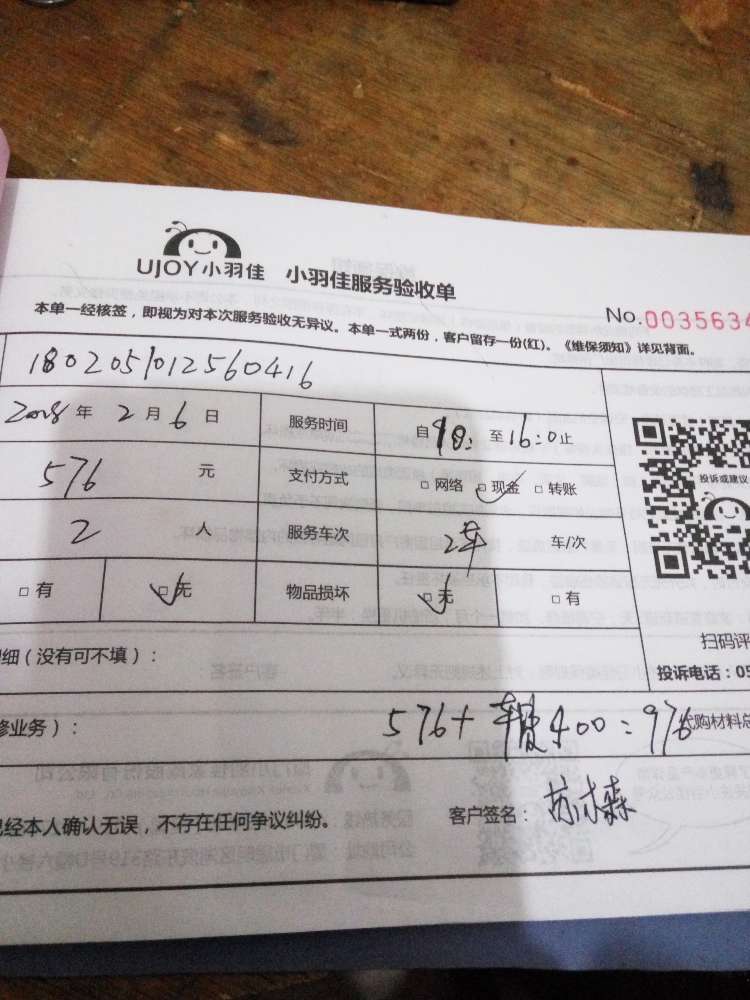 UJOY小羽佳 小羽佳服务验收单
No.0035634
本单一经核签，即视为对本次服务验收无异议。本单一式两份，客户留存一份(红)。《维保须知》详见背面。
180205012560416
2018年2月6日 服务时间 自 至16:0止
576 元 支付方式 □网络 □现金 □转账
投诉或建议
2 人 服务车次 2车 车/次
□有 □无 物品损坏 □无 □有
细（没有可不填）：
扫码评
投诉电话：05
修业务）：
576+车费400=976
代购材料总
已经本人确认无误，不存在任何争议纠纷。 客户签名：